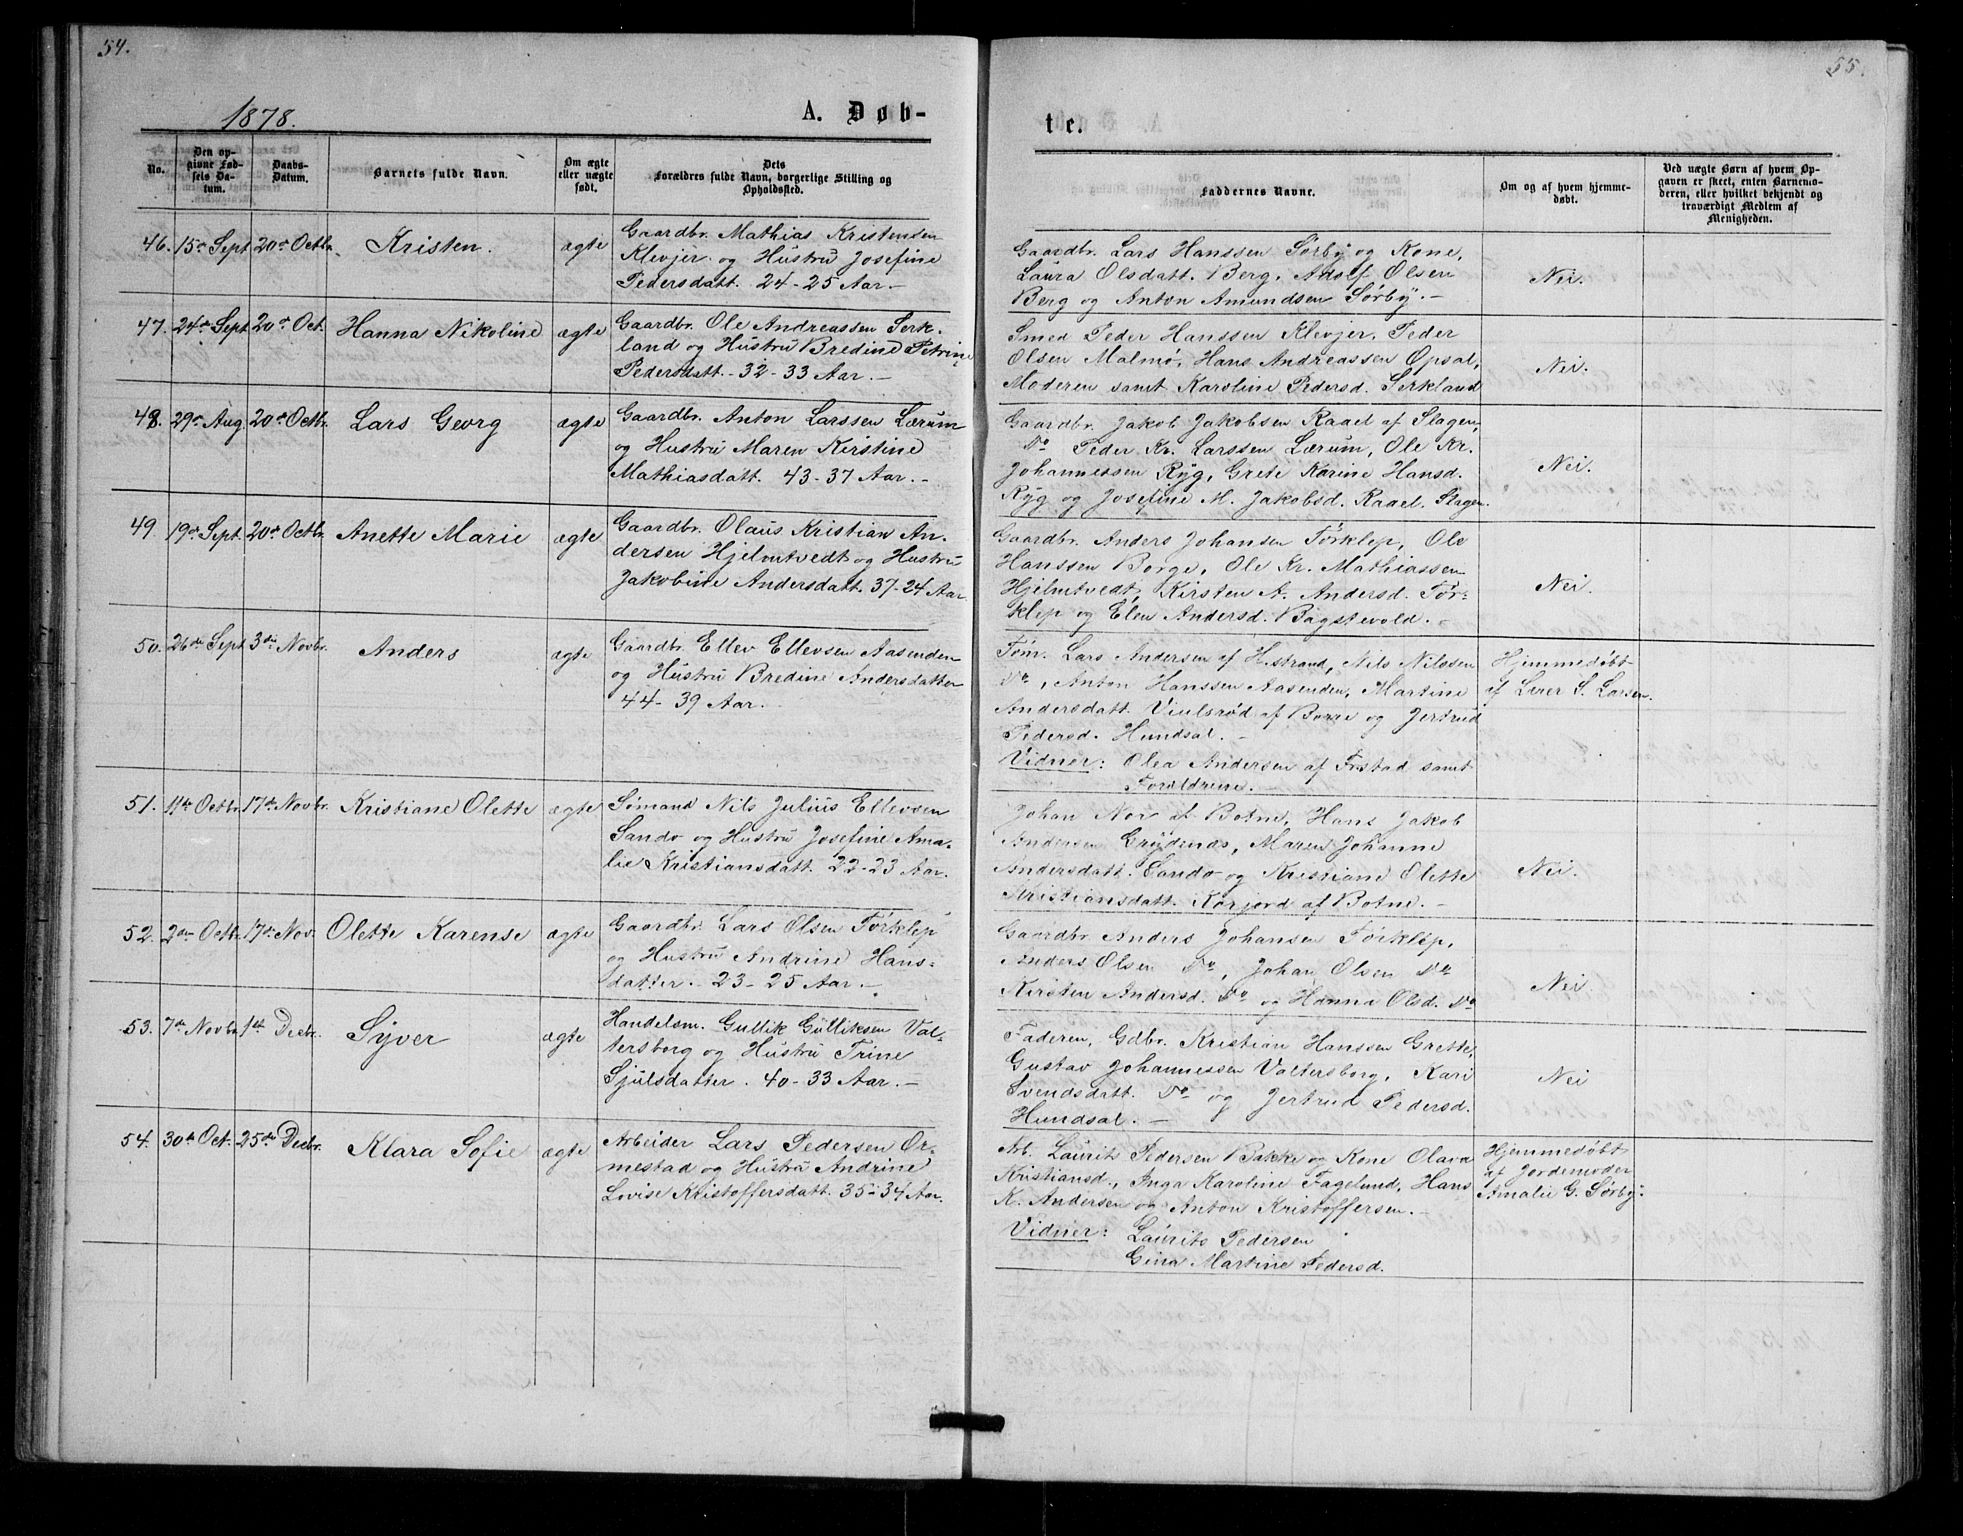 54.
1878.
A. Døb-
No.
Den op-
givne Fød-
sels Da-
tum.
Daabs-
Datum.
Barnets fulde Navn.
Om ægte
eller uægte
født.
Dets
Forældres fulde Navn, borgerlige Stilling og
Opholdssted.
46. 15de Sept 20de Octbr. Kristen. ægte
Gaardbr. Mathias Kristensen
Klevjer og Hustru Josefine
Pedersdatt. 24-25 Aar.-
47. 24de Sept 20de Oct. Hanna Nikoline ægte
Gaardbr. Ole Andreassen Serk-
land og Hustru Bredine Petrine
Pedersdatt.- 32-33 Aar.-
48. 29de Aug 20de Octbr. Lars Georg ægte
Gaardbr. Anton Larssen Lærum
og Hustru Maren Kirstine
Mathiasdatt. 43-37 Aar.-
49. 19de Sept. 20de Octbr. Anette Marie ægte
Gaardbr. Olaus Kristian An-
dersen Hjelmtvedt og Hustru
Jakobine Andersdatt. 37-24 Aar.
50. 26de Sept 3die Novbr. Anders ægte
Gaardbr. Ellev Ellevsen Aasenden
og Hustru Bredine Andersdatter
44-39 Aar.
51. 11te Octbr. 17de Novbr. Kristiane Olette ægte
Sømand Nils Julius Ellevsen
Sando og Hustru Josefine Ama-
lie Kristiansdatt. 22-23 Aar.
52. 2den Octb. 17de Nov. Olette Karense ægte
Gaardbr. Lars Olsen Førklep
og Hustru Andrine Hans-
datter.- 23-25 Aar.-
53. 7de Novbr. 1ste Decbr. Syver ægte
Handelsm. Gullik Gulliksen Val-
tersborg og Hustru Trine
Sjulsdatter. 40-33 Aar.-
54. 30te Oct. 25de Decbr. Klara Sofie ægte
Arbeider Lars Pedersen Or-
mestad og Hustru Andrine
Lovise Kristoffersdatt. 35-34 Aar.
55.
te.
Faddernes Navne.
Om og af hvem hjemme-
døbt.
Ved uægte Børn af hvem Op-
gaven er skeet, enten Barnemo-
deren, eller hvilket bekjendt og
troværdigt Medlem af
Menigheden.
Gaardbr. Lars Hanssen Sørby og Kone,
Laura Olsdatt. Berg, Adolf Olsen
Berg og Anton Amundsen Sørby.-
Nei.
Smed Peder Hanssen Klevjer, Peder
Olsen Malmø, Hans Andreassen Opsal,
Moderen samt Karoline Pedersd. Serkland
Nei.
Gaardbr. Jakob Jakobsen Raael af Slagen,
Do Peder Kr. Larssen Lærum, Ole Kr.
Johannessen Ryg, Grete Karine Hansd.
Ryg og Josefine M. Jakobsd. Raael. Slagen.
Nei.
Gaardbr. Anders Johansen Førklep, Ole
Hanssen Borge, Ole Kr. Mathiassen
Hjelmtvedt, Kirsten A. Andersd. Før-
klep og Elen Andersd. Bagstevold.-
Nei.
Tøm. Lars Andersen af Hstrand, Nils Nilssen
Do, Anton Hanssen Aasenden, Martine
Andersdatt. Viulsrød af Borre og Jertrud
Pedersd. Hundsal.-
Vidner: Olea Andersen af Fstad samt
Forældrene.-
Hjemmedøbt
af Lærer S. Larsen.
Johan Nor af Botne, Hans Jakob
Andersen Grydenæs, Maren Johanne
Andersdatt. Sando og Kristiane Olette
Kristiansdatt. Korjord af Botne.-
Nei.
Gaardbr. Anders Johansen Førklep,
Anders Olsen Do, Johan Olsen Do
Kirsten Andersd. Do og Hanna Olsd. Do
Nei.
Faderen, Gdbr. Kristian Hanssen Grette,
Gustav Johannessen Valtersborg, Kari
Svendsdatt. Do og Jertrud Pedersd.
Hundsal.-
Nei
Arb. Laurits Pedersen Bakke og Kone Olava
Kristiansd., Inga Karoline Fagelund, Hans
K. Andersen og Anton Kristoffersen.-
Vidner: Laurits Pedersen
Gina Martine Pedersd.
Hjemmedøbt
af Jordemoder
Amalie G. Sørby.